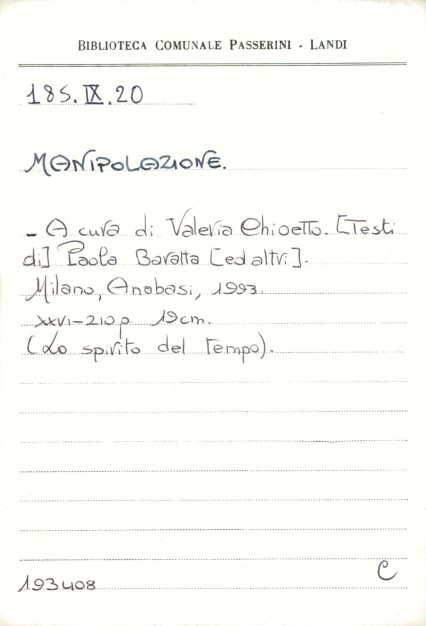 BIBLIOTECA COMUNALE PASSERINI - LANDI
185.IX.20
MANIPOLAZIONE.
- A cura di Valeria Chioetto. [Testi
di] Paola Baratta [ed altri].
Milano, Anabasi, 1993.
XXVI-210 p 19 cm.
(Lo spirito del tempo).
193408
C